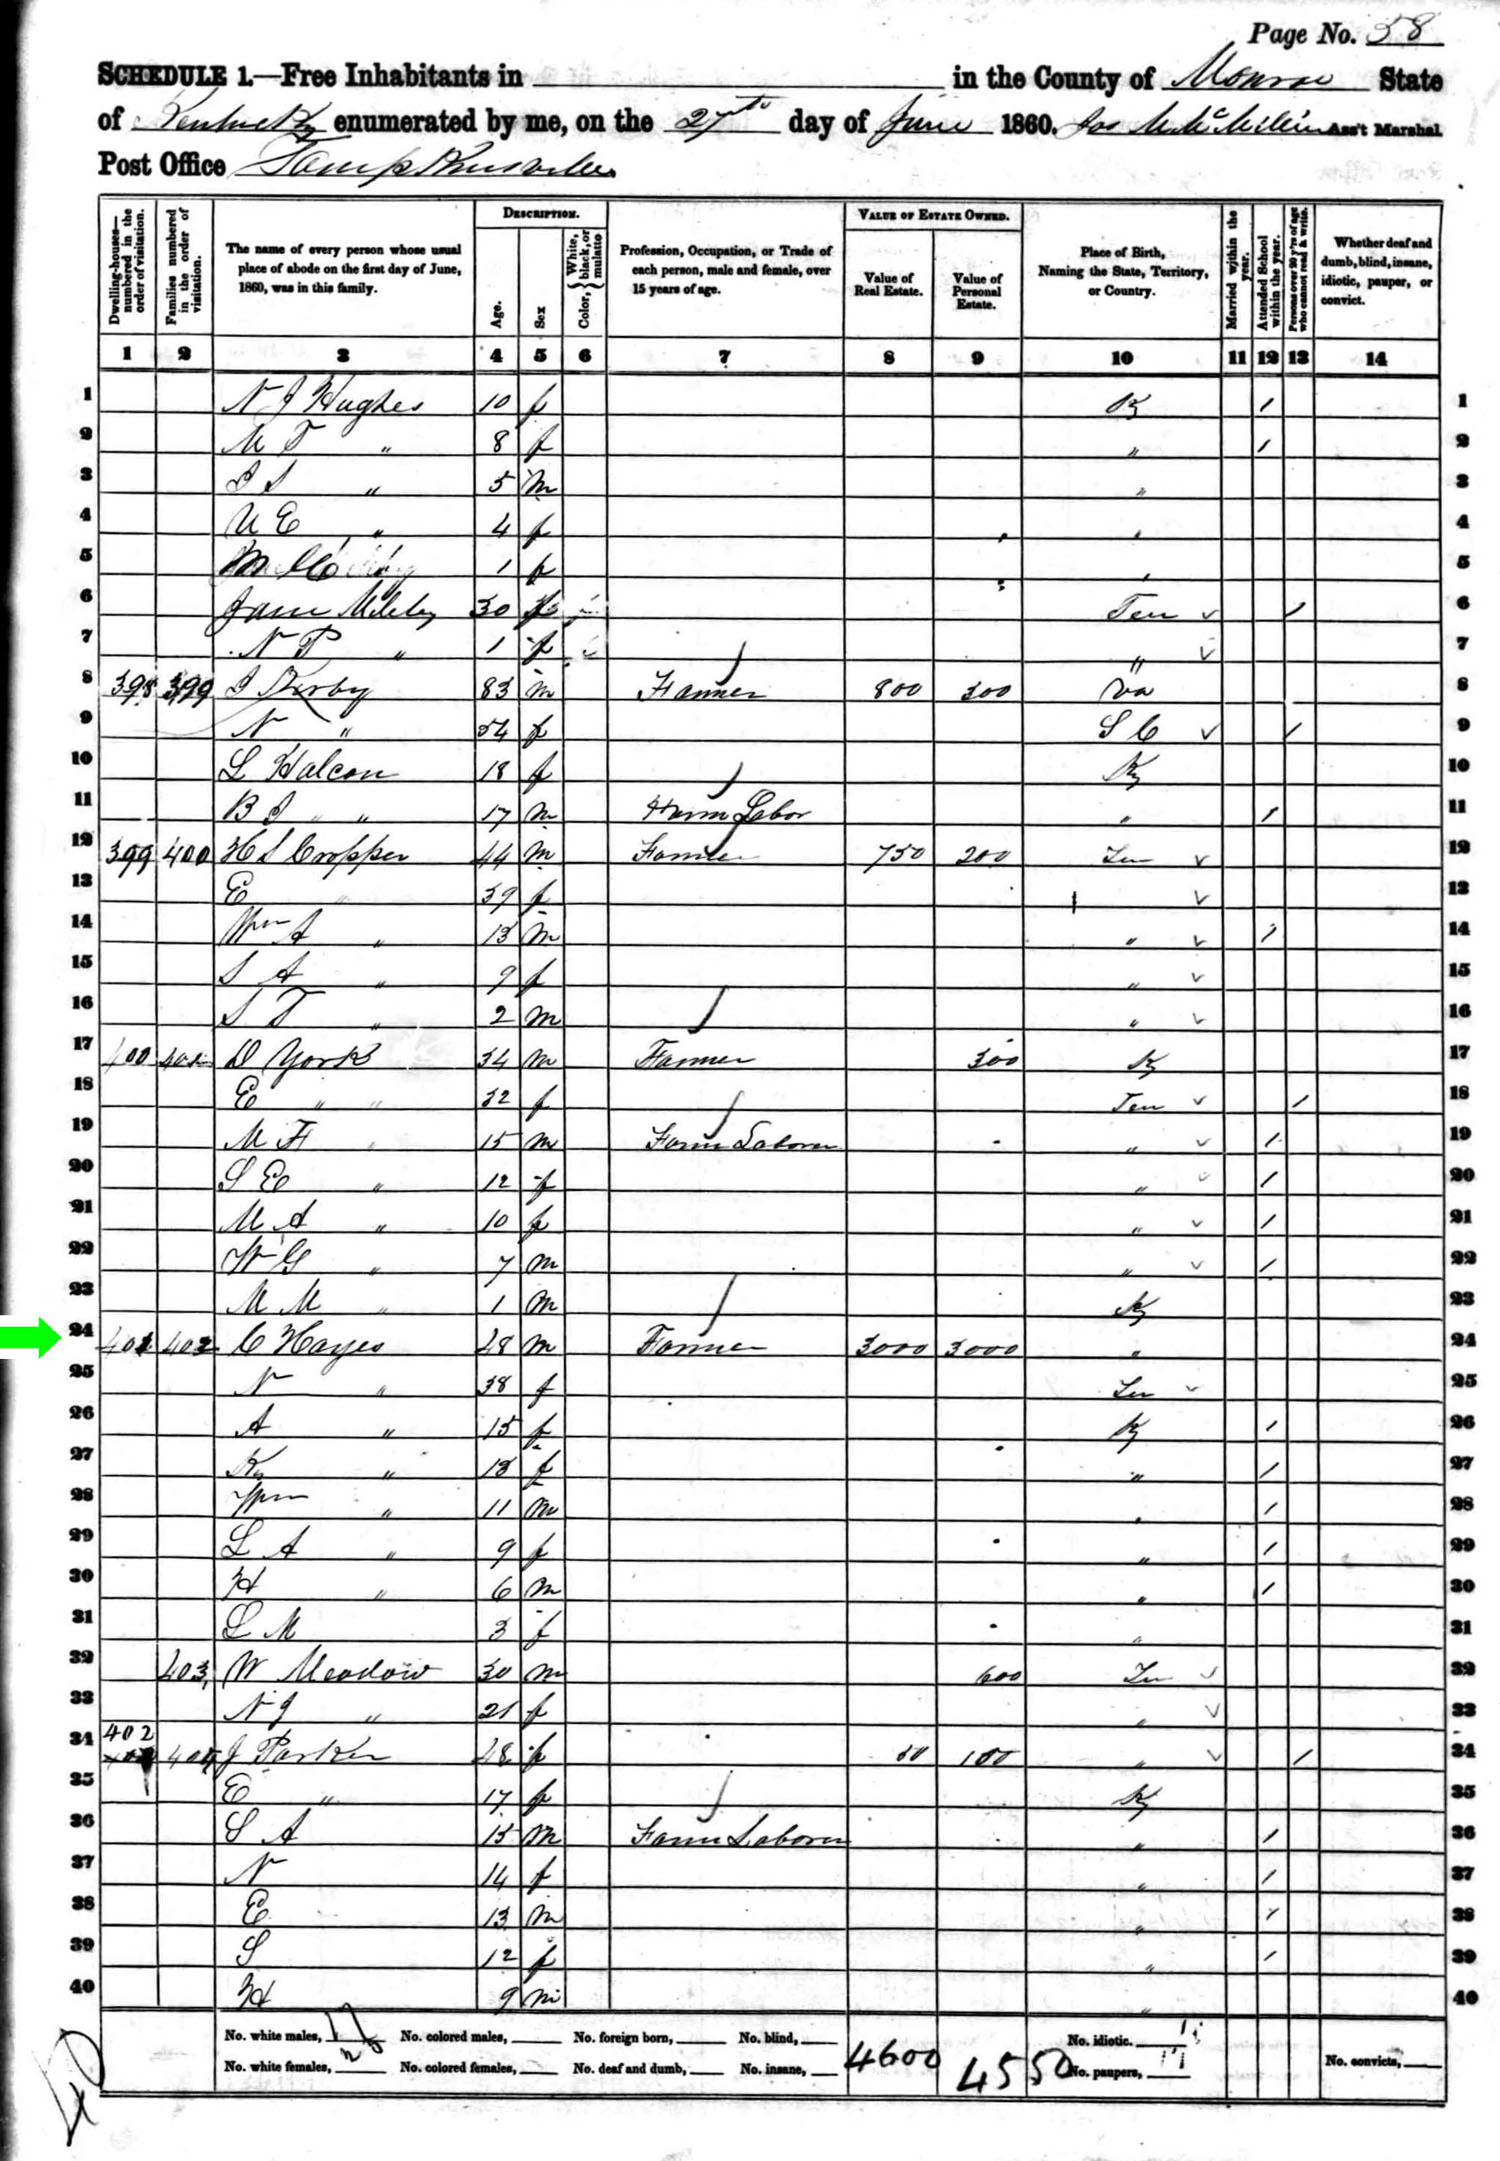 Page No. 58
SCHEDULE 1.—Free Inhabitants in in the County of Monroe State
of Kentucky enumerated by me, on the 27th day of June 1860. Jas M McMillin Ass't Marshal.
Post Office Tompkinsville
Dwelling-houses—numbered in the order of visitation.
Families numbered in the order of visitation.
The name of every person whose usual place of abode on the first day of June, 1860, was in this family.
DESCRIPTION.
Age.
Sex
Color, { White, black, or mulatto
Profession, Occupation, or Trade of each person, male and female, over 15 years of age.
VALUE OF ESTATE OWNED.
Value of Real Estate.
Value of Personal Estate.
Place of Birth, Naming the State, Territory, or Country.
Married within the year.
Attended School within the year.
Persons over 20 y'rs of age who cannot read & write.
Whether deaf and dumb, blind, insane, idiotic, pauper, or convict.
1 2 3 4 5 6 7 8 9 10 11 12 13 14
1 N J Hughes 10 f Ky / 1
2 M T " 8 f " / 2
3 J S " 5 m " 3
4 U E " 4 f " 4
5 1 f " 5
6 Jane 30 f Ten / 6
7 N P " 1 f " 7
8 398 399 J Kirby 83 m Farmer 800 300 Va 8
9 N " 54 f S C / 9
10 L Halcom 18 f Ky 10
11 B J " " 17 m Farm Labor " / 11
12 399 400 H S Cropper 44 m Farmer 750 200 Ten 12
13 E " 39 f 13
14 Wm A " 13 m " / 14
15 S A " 9 f " 15
16 S T " 2 m " 16
17 400 401 D York 34 m Farmer 300 Ky 17
18 E " " 32 f Ten / 18
19 M F " 15 m Farm Laborer " / 19
20 S E " 12 f " / 20
21 M A " 10 f " / 21
22 W G " 7 m " / 22
23 M M " 1 m Ky 23
24 401 402 C Hayes 48 m Farmer 3000 3000 " 24
25 N " 38 f Ten 25
26 A " 15 f Ky / 26
27 " 13 f " / 27
28 Wm " 11 m " / 28
29 L A " 9 f " / 29
30 H " 6 m " / 30
31 L M 3 f " 31
32 403 W Meadow 30 m 600 Ten 32
33 N J " 21 f " 33
402
34 404 J Parker 48 f 50 100 " / 34
35 E " 17 f Ky 35
36 S A 15 m Farm Laborer " / 36
37 N 14 f " / 37
38 E 13 m " / 38
39 S 12 f " / 39
40 H 9 m " 40
No. white males, 17 No. colored males, No. foreign born, No. blind, 4600 4550 No. idiotic. No. convicts,
No. white females, 23 No. colored females, No. deaf and dumb, No. insane, No. paupers,
40